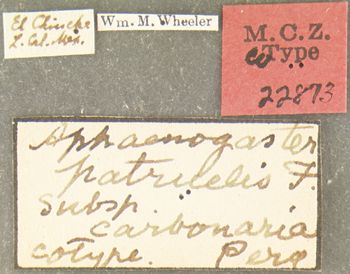 El Chinche
L. Cal. Mex.
Wm. M. Wheeler
M. C. Z.
CoType
22873
Aphaenogaster
patruelis F.
subsp.
carbonaria
cotype. Perg